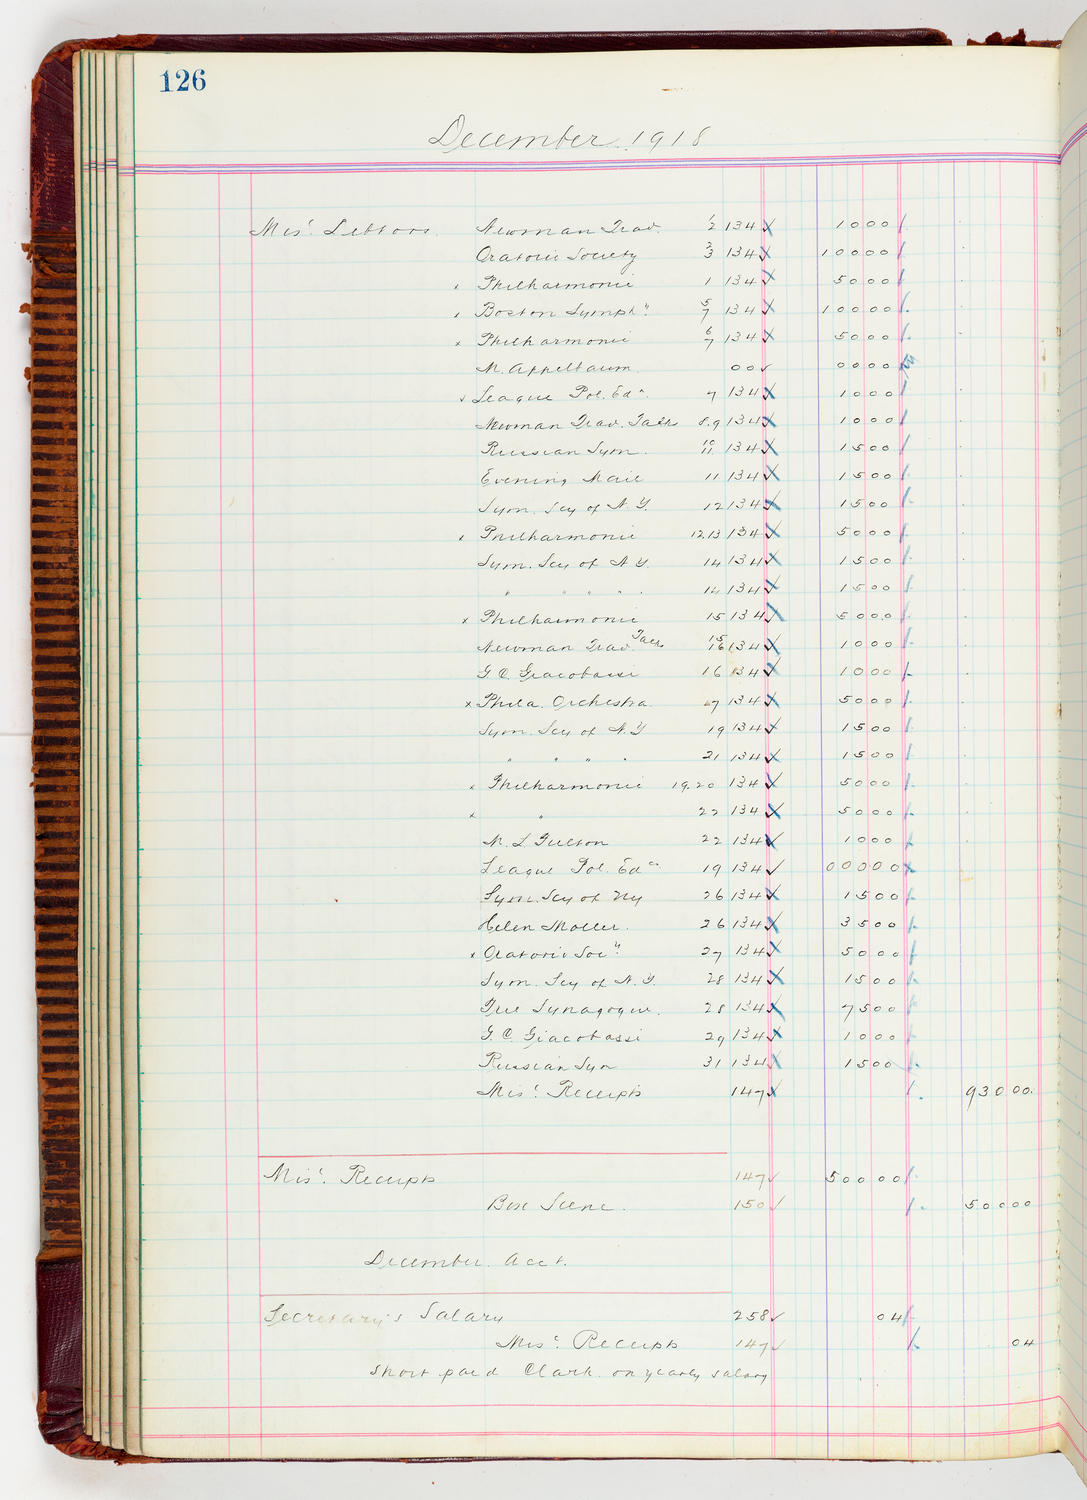 126
December 1918
Mis'. Lettors. Newman Trav. 1/2 134 1000
Oratorio Society 2/3 134 10000
Philharmonic 1 134 5000
Boston Symph'y 5/7 134 10000
x Philharmonic 6/7 134 5000
M. Appelbaum 00 0000
x League Pol. Edn 7 134 1000
Newman Trav. Talk 8.9 134 1000
Russian Sym. 10/11 134 1500
Evening Mail 11 134 1500
Sym. Scy of N.Y. 12 134 1500
Philharmonic 12.13 134 5000
Sym. Scy of N.Y. 14 134 1500
" " " " 14 134 1500
x Philharmonic 15 134 5000
Newman Trav. Talk 15/16 134 1000
G. C. Giacobassi 16 134 1000
x Phila. Orchestra 17 134 5000
Sym. Scy of N.Y 19 134 1500
" " " " 21 134 1500
x Philharmonic 19.20 134 5000
x " 22 134 5000
M. L. 22 134 1000
League Pol. Edn 19 134 00000
Sym. Scy of Ny 26 134 1500
Helen Moller. 26 134 3500
x Oratorio Soc'y 27 134 5000
Sym. Scy of N.Y. 28 134 1500
Free Synagogue. 28 134 7500
G. C. Giacobassi 29 134 1000
Russian Sym 31 134 1500
Mis'. Receipts 147 93000
Mis'. Receipts 147 50000
Box Scene. 150 50000
December. acct.
Secretary's Salary 258 04
Mis'. Receipts 147 04
Short paid Clark. on yearly salary